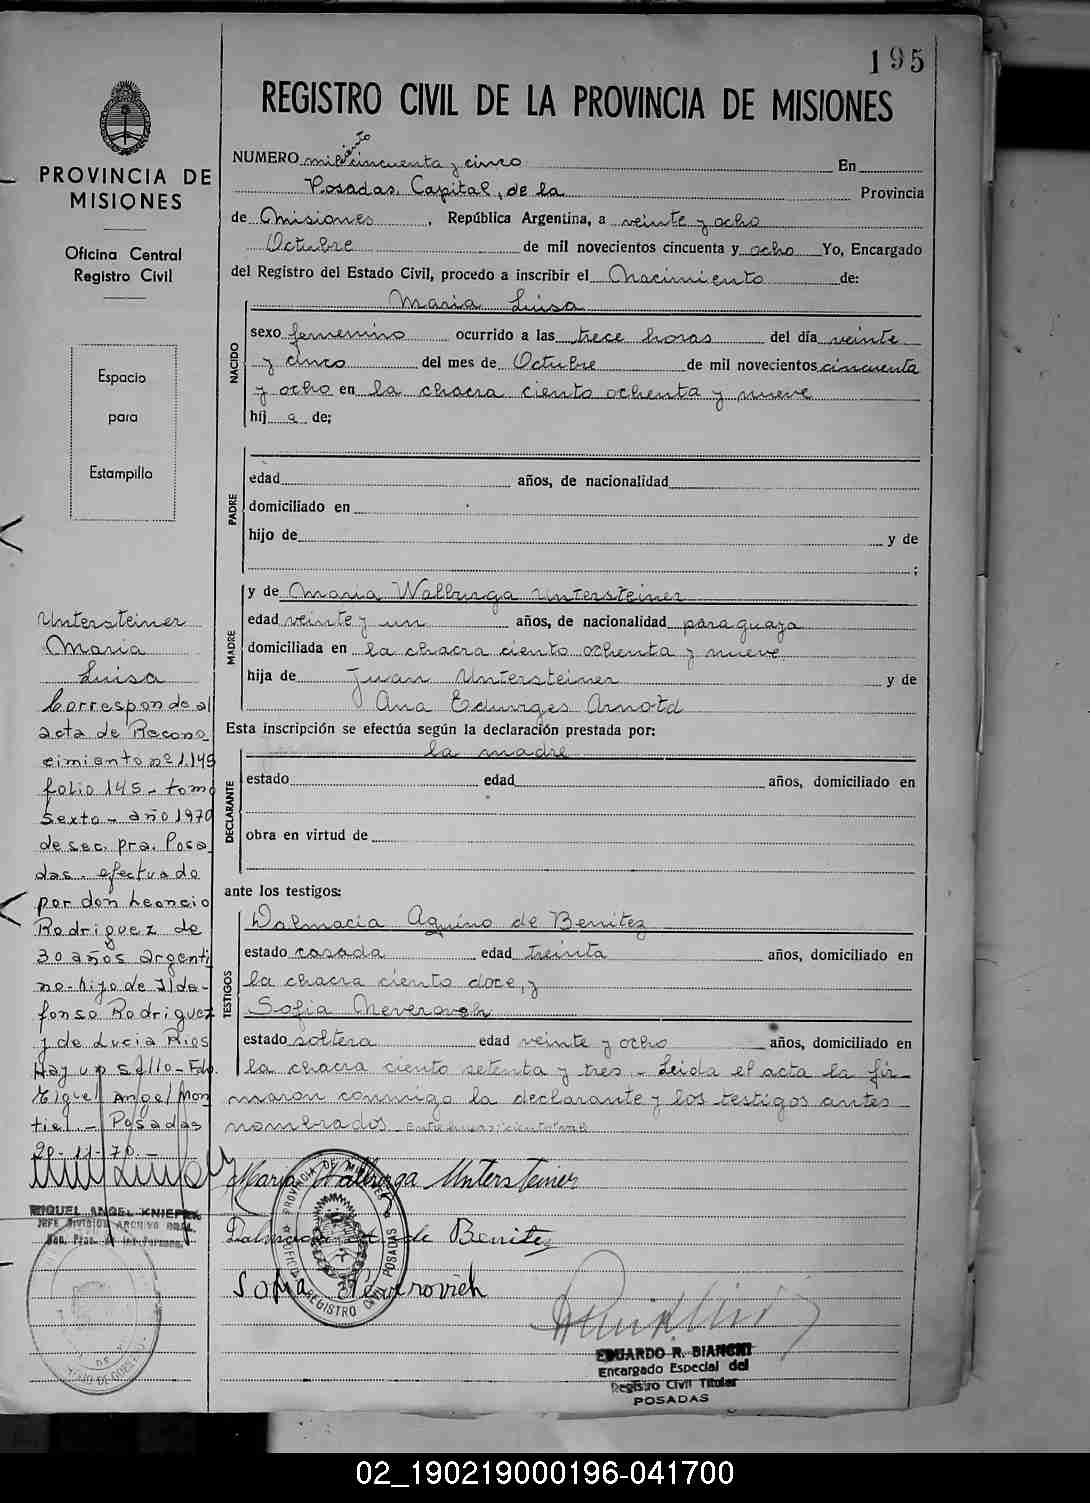 195
REGISTRO CIVIL DE LA PROVINCIA DE MISIONES
PROVINCIA DE
MISIONES
Oficina Central
Registro Civil
Espacio
para
Estampilla
ciento
NUMERO mil cincuenta y cinco En
Posadas, Capital, de la Provincia
de Misiones, República Argentina, a veinte y ocho
Octubre de mil novecientos cincuenta y ocho Yo, Encargado
del Registro del Estado Civil, procedo a inscribir el Nacimiento de:
NACIDO
Maria Luisa
sexo femenino ocurrido a las trece horas del día veinte
y cinco del mes de Octubre de mil novecientos cincuenta
y ocho en la chacra ciento ochenta y nueve
hij a de;
PADRE
edad años, de nacionalidad
domiciliado en
hijo de y de
;
MADRE
y de Maria Walburga Untersteiner
edad veinte y un años, de nacionalidad paraguaya
domiciliada en la chacra ciento ochenta y nueve
hija de Juan Untersteiner y de
Ana Eduvrges Arnold
Esta inscripción se efectúa según la declaración prestada por:
DECLARANTE
la madre
estado edad años, domiciliado en
obra en virtud de
ante los testigos:
TESTIGOS
Dalmacia Aquino de Benitez
estado casada edad treinta años, domiciliado en
la chacra ciento doce, y
Sofia
estado soltera edad veinte y ocho años, domiciliado en
la chacra ciento setenta y tres. Leida el acta la fir-
maron conmigo la declarante y los testigos antes
nombrados
Untersteiner
Maria
Luisa
Corresponde al
acta de Recono
cimiento nº 1.145
folio 145 - tomo
sexto - año 1970
de sec. pra. Posa
das. efectuado
por don Leoncio
Rodriguez de
30 años argenti
no - hijo de Ilde-
fonso Rodriguez
y de Lucia Rios
Hay un sello - Fdo.
Miguel Angel Mon
tiel - Posadas
20-11-70.-
Maria Walburga Untersteiner
Dalmacia A. de Benitez
Sofia
PROVINCIA DE MISIONES
REGISTRO CIVIL POSADAS
MIGUEL ANGEL KNIEPER
JEFE DIVISION ARCHIVO GRAL.
EDUARDO R. BIANCHI
Encargado Especial del
Registro Civil Titular
POSADAS
02_190219000196-041700